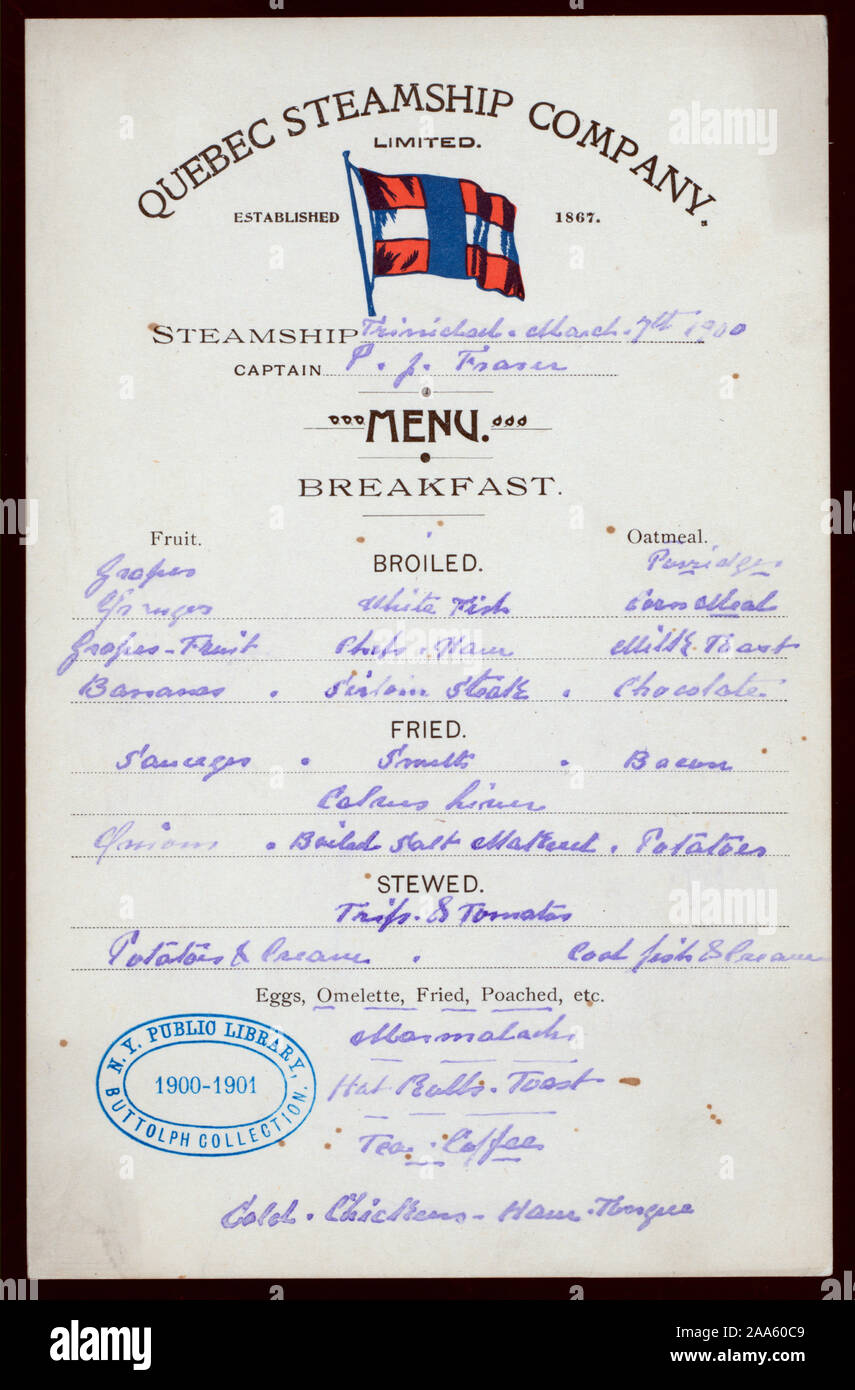 QUEBEC STEAMSHIP COMPANY.
LIMITED.
ESTABLISHED 1867.
STEAMSHIP Trinidad. March. 7th 1900
CAPTAIN P. J. Fraser
MENU.
BREAKFAST.
Fruit. Oatmeal.
Grapes BROILED. Porridge
Oranges White Fish Corn Meal
Grapes-Fruit Chops. Ham Milk Toast
Bananas . Sirloin Steak . Chocolate.
FRIED.
Sausages . Smelts . Bacon
Calves Liver
Onions . Boiled Salt Makerel . Potatoes
STEWED.
Tripe & Tomatos
Potatoes & Cream . Cod fish & Cream
Eggs, Omelette, Fried, Poached, etc.
Marmalade
Hot Rolls. Toast
Tea. Coffee
Cold. Chickens - Ham. Tongue
N. Y. PUBLIC LIBRARY,
1900-1901
BUTTOLPH COLLECTION.
alamy
alamy
Image ID: 2AA60C9
www.alamy.com